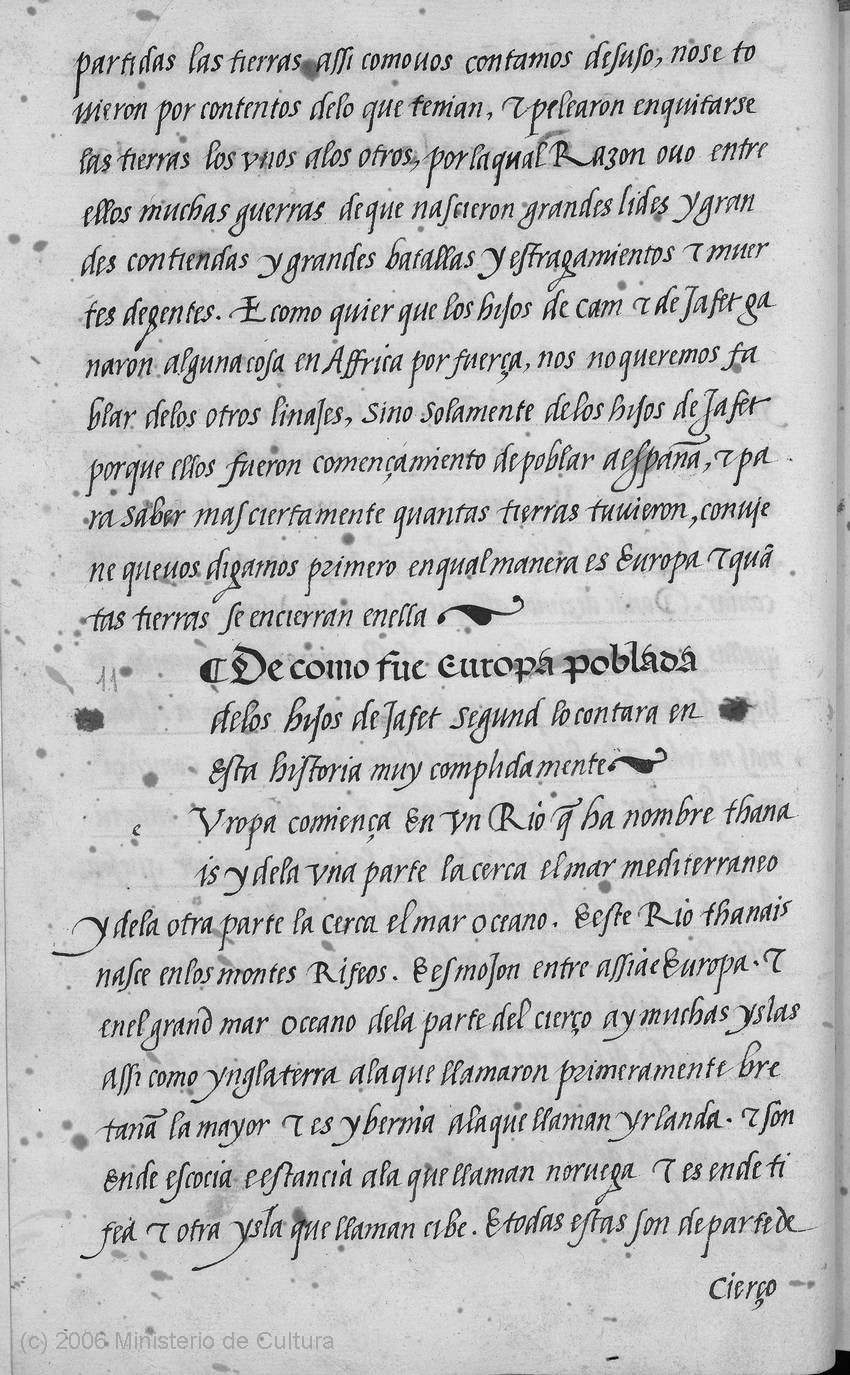 partidas las tierras assi como uos contamos desuso, nose to
uieron por contentos delo que tenian, τ pelearon enquitarse
las tierras los vnos alos otros, por laqual Razon ouo entre
ellos muchas guerras de que nascieron grandes lides y gran
des contiendas y grandes batallas y estragamientos τ muer
tes degentes. E como quier que los hijos de cam τ de Jafet ga
naron alguna cosa en Affrica por fuerça, nos no queremos fa
blar delos otros linajes, sino solamente delos hijos de Jafet
porque ellos fueron començamiento de poblar a españa, τ pa
ra saber mas ciertamente quantas tierras tuuieron, conuie
ne que uos digamos primero en qual manera es Europa τ quã
tas tierras se encierran enella
¶ De como fue Europa poblada
delos hijos de Jafet segund lo contara en
esta historia muy complidamente
11
e
Vropa comiença en vn Rio q̃ ha nombre thana
is y dela vna parte la cerca el mar mediterraneo
y dela otra parte la cerca el mar oceano. E este Rio thanais
nasce enlos montes Rifeos. E es mojon entre assia e Europa. τ
enel grand mar oceano dela parte del cierço ay muchas yslas
assi como ynglaterra ala que llamaron primeramente bre
tanã la mayor τ es ybernia ala que llaman yrlanda. τ son
ende escocia e estancia ala que llaman noruega τ es ende ti
fea τ otra ysla que llaman cibe. E todas estas son de parte de
Cierço
(c) 2006 Ministerio de Cultura